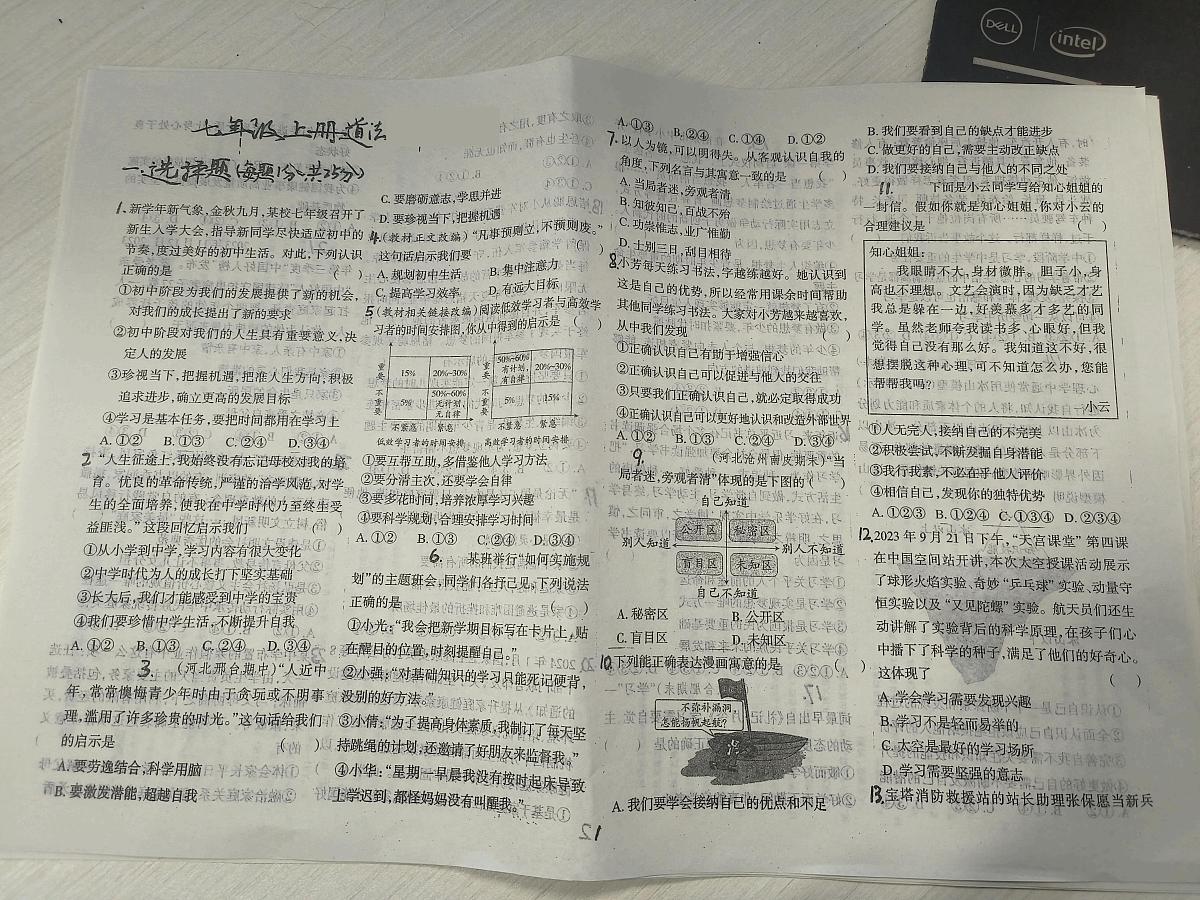 七年级上册道法
一、选择题(每题1分,共25分)
1.新学年新气象,金秋九月,某校七年级召开了
新生入学大会,指导新同学尽快适应初中的
节奏,度过美好的初中生活。对此,下列认识
正确的是 ( )
①初中阶段为我们的发展提供了新的机会,
对我们的成长提出了新的要求
②初中阶段对我们的人生具有重要意义,决
定人的发展
③珍视当下,把握机遇,把准人生方向,积极
追求进步,确立更高的发展目标
④学习是基本任务,要把时间都用在学习上
A. ①② B. ①③ C. ②④ D. ③④
2.“人生征途上,我始终没有忘记母校对我的培
育。优良的革命传统,严谨的治学风范,对学
生的全面培养,使我在中学时代乃至终生受
益匪浅。”这段回忆启示我们 ( )
①从小学到中学,学习内容有很大变化
②中学时代为人的成长打下坚实基础
③长大后,我们才能感受到中学的宝贵
④我们要珍惜中学生活,不断提升自我
A. ①② B. ①③ C. ②④ D. ③④
3. (河北邢台期中)“人近中
年,常常懊悔青少年时由于贪玩或不明事
理,滥用了许多珍贵的时光。”这句话给我们
的启示是 ( )
A. 要劳逸结合,科学用脑
B. 要激发潜能,超越自我
C. 要磨砺意志,学思并进
D. 要珍视当下,把握机遇
4.(教材正文改编)“凡事预则立,不预则废。”
这句话启示我们要 ( )
A. 规划初中生活 B. 集中注意力
C. 提高学习效率 D. 有远大目标
5(教材相关链接改编)阅读低效学习者与高效学
习者的时间安排图,你从中得到的启示是 ( )
重要 15% 20%~30% 重要 50%~60%有计划,有自律 20%~30%
不重要 5% 50%~60%无计划,无自律 不重要 5% 15%
不紧急 紧急 不紧急 紧急
低效学习者的时间安排 高效学习者的时间安排
①要互帮互助,多借鉴他人学习方法
②要分清主次,还要学会自律
③要多花时间,培养浓厚学习兴趣
④要科学规划,合理安排学习时间
A. ①② B. ①③ C. ②④ D. ③④
6. 某班举行“如何实施规
划”的主题班会,同学们各抒己见,下列说法
正确的是 ( )
①小光:“我会把新学期目标写在卡片上,贴
在醒目的位置,时刻提醒自己。”
②小强:“对基础知识的学习只能死记硬背,
没别的好方法。”
③小倩:“为了提高身体素质,我制订了每天坚
持跳绳的计划,还邀请了好朋友来监督我。”
④小华:“星期一早晨我没有按时起床导致
上学迟到,都怪妈妈没有叫醒我。”
A. ①③ B. ②④ C. ①④ D. ①②
7.以人为镜,可以明得失。从客观认识自我的
角度,下列名言与其寓意一致的是 ( )
A. 当局者迷,旁观者清
B. 知彼知己,百战不殆
C. 功崇惟志,业广惟勤
D. 士别三日,刮目相待
8.小芳每天练习书法,字越练越好。她认识到
这是自己的优势,所以经常用课余时间帮助
其他同学练习书法。大家对小芳越来越喜欢,
从中我们发现 ( )
①正确认识自己有助于增强信心
②正确认识自己可以促进与他人的交往
③只要我们正确认识自己,就必定取得成功
④正确认识自己可以更好地认识和改造外部世界
A. ①② B. ①③ C. ②④ D. ③④
9. (河北沧州南皮期末)“当
局者迷,旁观者清”体现的是下图的 ( )
自己知道
公开区 秘密区
别人知道 别人不知道
盲目区 未知区
自己不知道
A. 秘密区 B. 公开区
C. 盲目区 D. 未知区
10.下列能正确表达漫画寓意的是 ( )
不弥补漏洞,
怎能扬帆起航?
A. 我们要学会接纳自己的优点和不足
B. 我们要看到自己的缺点才能进步
C. 做更好的自己,需要主动改正缺点
D. 我们要接纳自己与他人的不同之处
11. 下面是小云同学写给知心姐姐的
一封信。假如你就是知心姐姐,你对小云的
合理建议是 ( )
知心姐姐:
我眼睛不大,身材微胖。胆子小,身
高也不理想。文艺会演时,因为缺乏才艺
我总是躲在一边,好羡慕多才多艺的同
学。虽然老师夸我读书多、心眼好,但我
觉得自己没有那么好。我知道这不好,很
想摆脱这种心理,可不知道怎么办,您能
帮帮我吗?
小云
①人无完人,接纳自己的不完美
②积极尝试,不断发掘自身潜能
③我行我素,不必在乎他人评价
④相信自己,发现你的独特优势
A. ①②③ B. ①②④ C. ①③④ D. ②③④
12.2023 年 9 月 21 日下午,“天宫课堂”第四课
在中国空间站开讲,本次太空授课活动展示
了球形火焰实验、奇妙“乒乓球”实验、动量守
恒实验以及“又见陀螺”实验。航天员们还生
动讲解了实验背后的科学原理,在孩子们心
中播下了科学的种子,满足了他们的好奇心。
这体现了 ( )
A. 学会学习需要发现兴趣
B. 学习不是轻而易举的
C. 太空是最好的学习场所
D. 学习需要坚强的意志
13.宝塔消防救援站的站长助理张保愿当新兵
12
DELL
intel